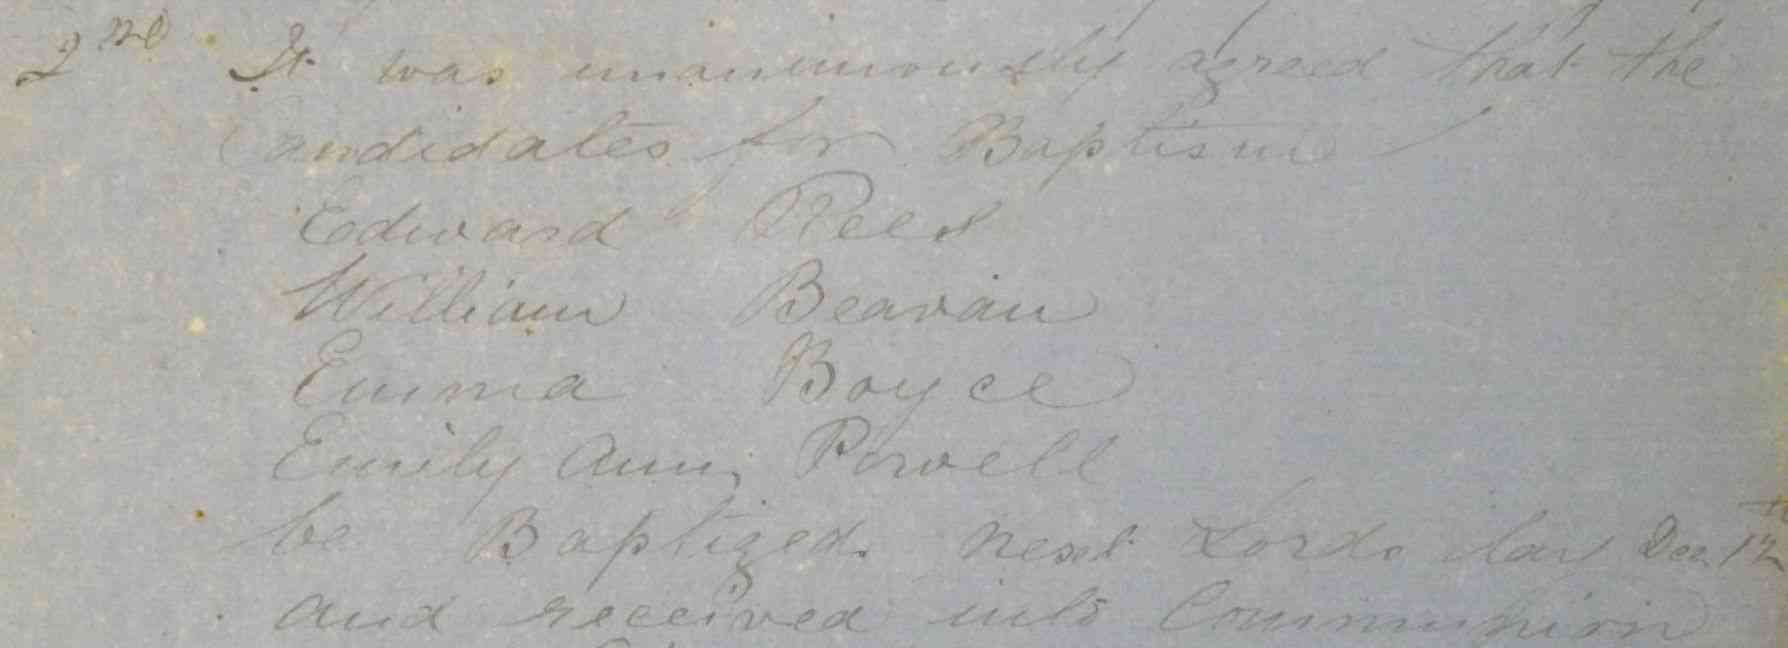 2nd It was unanimously agreed that the
Candidates for Baptism
Edward Rees
William Beavan
Emma Boyce
Emily Ann Powell
be Baptized next Lords day Dec 12th
and received into Communion